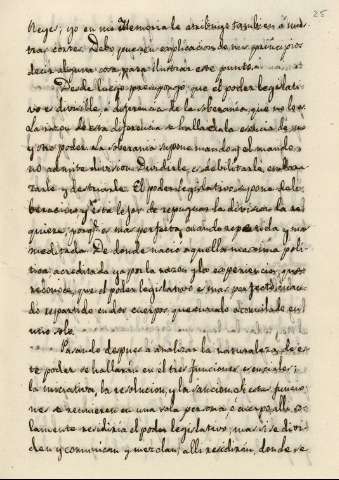 25
Reyes; yo en mi Memoria le atribuyo tambien á nues-
tras cortes. Debo pues en explicacion de mis principios
decir alguna cosa para ilustrar este punto.
Desde luego presupongo que el poder legislati-
vo es divisible, á diferencia de la soberanía, que no lo es.
La razon de esta diferencia se halla en la esencia de uno
y otro poder. La soberanía supone mando, y el mando
no admite division. Dividirle, es debilitarle, embara-
zarle y destruirle. El poder legislativo supone deli-
beracion, y esta lejos de repugnar la division la re-
quiere, porque es mas perfecta, cuando repetida y mas
meditada. De donde nació aquella maxima polí-
tica acreditada ya por la razon y la experiencia, que
reconoce, que el poder legislativo es mas perfecto, cuan-
do repartido en dos cuerpos, que cuando acumulado en
uno solo.
Pasando despues á analizar la naturaleza, de es-
te poder se hallarán en él tres funciones esenciales;
la iniciativa, la resolucion, y la sancion. Si estas funcio-
nes se reunieren en una sola persona ó cuerpo, allí so-
lamente residirá el poder legislativo; mas si se divi-
den y comunican y mezclan, allí residirán, donde se